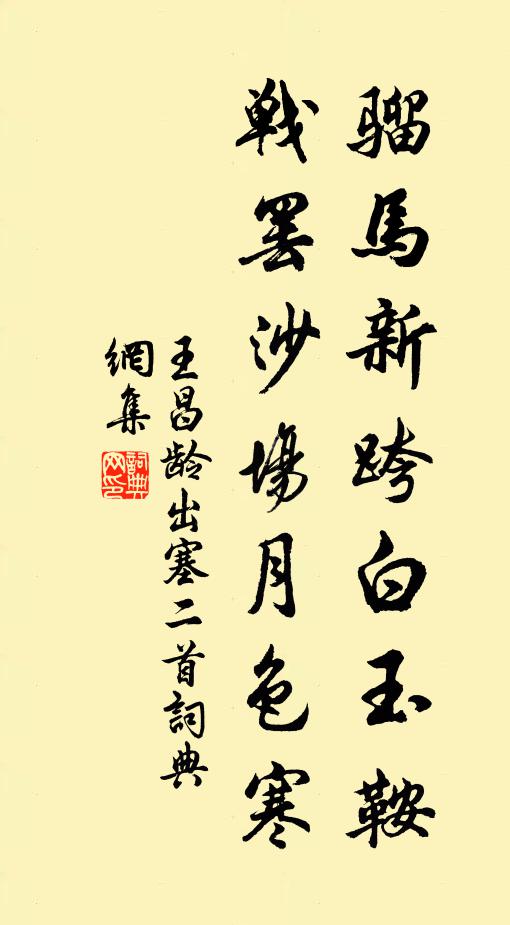 騮馬新跨白玉鞍
戰罷沙場月色寒
王昌龄出塞二首詞典
網集
詞典網印